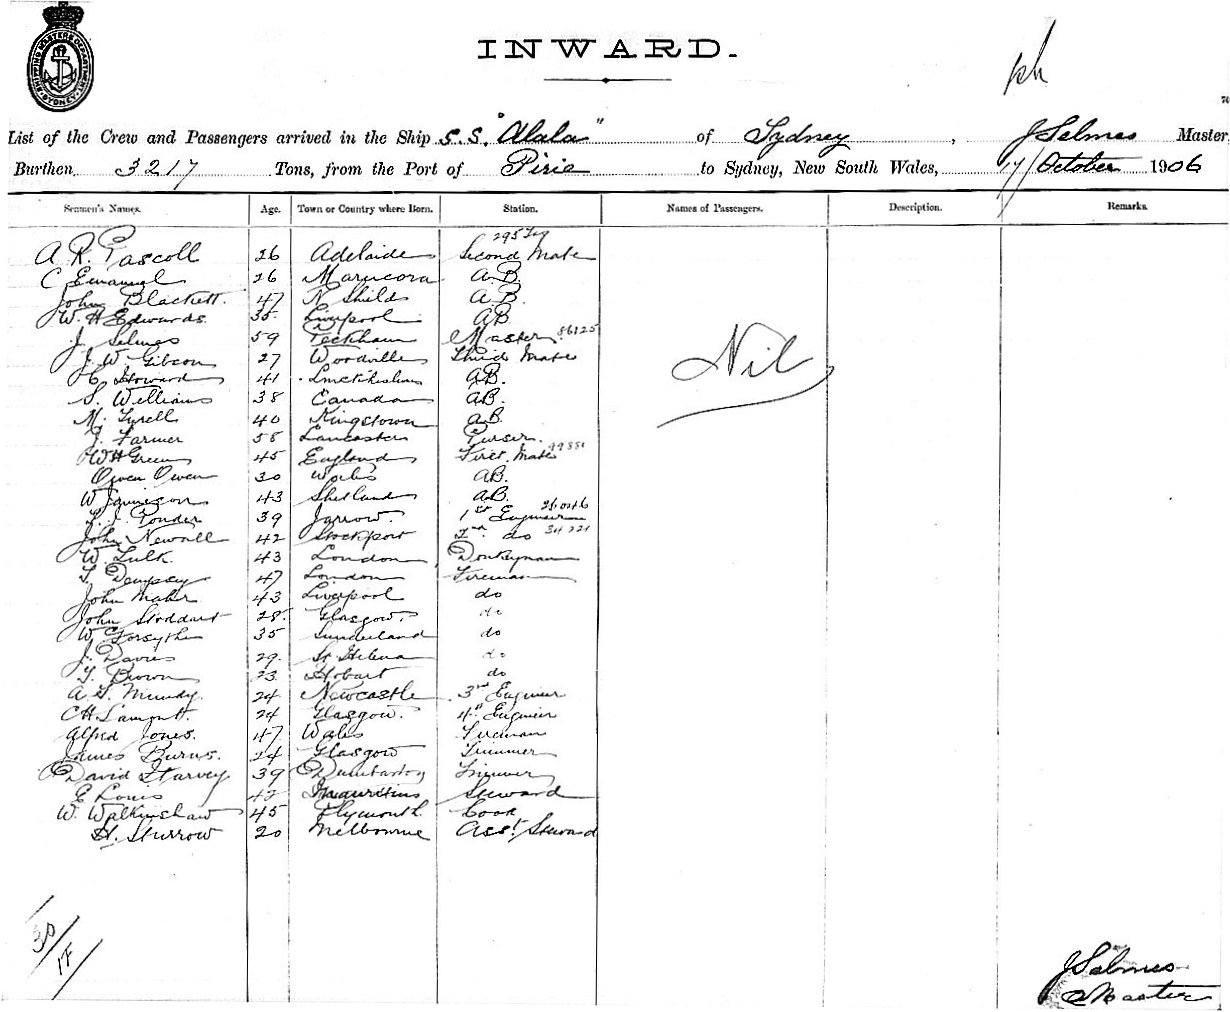 SHIPPING MASTERS DEPARTMENT SYDNEY
INWARD.
List of the Crew and Passengers arrived in the Ship S.S. "Alala" of Sydney, J Selmes Master
Burthen 3217 Tons, from the Port of Pirie to Sydney, New South Wales, 17/October 1906
Seamen's Names. Age. Town or Country where Born. Station. Names of Passengers. Description. Remarks.
A. R. Pascoll 26 Adelaide Second Mate
C Emanuel 26 A.B.
John Blackett. 47 N Shields A.B.
W. H Edwards 35. Liverpool AB
J. Selmes 59 Peckham Master 86125
J. W. Gibson 27 Woodville Third Mate
Nil
C Howard 41 AB.
S. Williams 38 Canada AB.
M. Tyrell 40 Kingstown AB.
J. Farmer 58 Lancaster Purser.
W H Green 45 England First Mate
Owen Owen 30 Wales AB.
W Jamieson 43 Shetland AB.
Ponder 39 Jarrow. 1st Engineer
John Newall 42 Stockport 2nd do
W. Tulk 43 London Donkeyman
T. Dempsey 47 London Fireman
John Maher 43 Liverpool do
John Stoddart 28. Glasgow. do
W Forsythe 35 Sunderland do
J. Davies 29. St Helena do
T. Brown 23. Hobart do
A. G. Mundy. 24 Newcastle 3rd Engineer
C H. Lamont. 24 Glasgow. 4th Engineer
Alfred Jones. 47 Wales Fireman
James Burns. 24 Glasgow Trimmer
David Harvey 39 Dumbarton Trimmer
E Louis 42 Mauritius Steward
W. Walkinshaw 45 Plymouth. Cook
H. Sturrow 20 Melbourne Asst Steward
30/17
J Selmes
Master